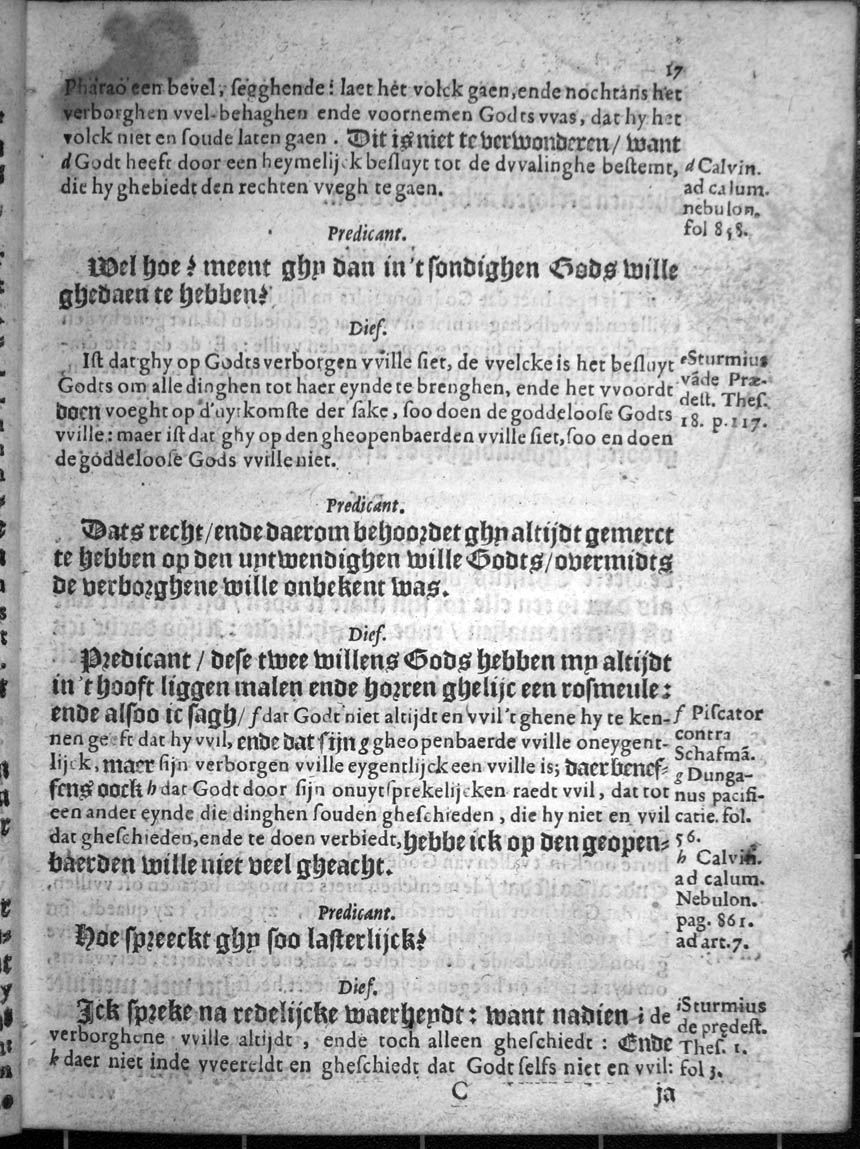 17
Pharao een bevel, segghende: laet het volck gaen, ende nochtans het
verborghen vvel-behaghen ende voornemen Godts vvas, dat hy het
volck niet en soude laten gaen. Dit is niet te verwonderen/ want
d Godt heeft door een heymelijck besluyt tot de dvvalinghe bestemt,
die hy ghebiedt den rechten vvegh te gaen.
d Calvin.
ad calum.
nebulon.
fol 858.
Predicant.
Wel hoe? meent ghy dan in 't sondighen Gods wille
ghedaen te hebben?
Dief.
Ist dat ghy op Godts verborgen vville siet, de vvelcke is het besluyt
Godts om alle dinghen tot haer eynde te brenghen, ende het vvoordt
doen voeght op d'uytkomste der sake, soo doen de goddeloose Godts
vville: maer ist dat ghy op den gheopenbaerden vville siet, soo en doen
de goddeloose Gods vville niet.
e Sturmius
vāde Præ-
dest. Thes.
18. p. 117.
Predicant.
Dats recht/ ende daerom behoordet ghy altijdt gemerct
te hebben op den uytwendighen wille Godts/ overmidts
de verborghene wille onbekent was.
Dief.
Predicant/ dese twee willens Gods hebben my altijdt
in 't hooft liggen malen ende horren ghelijc een rosmeule:
ende alsoo ic sagh/ f dat Godt niet altijdt en vvil 't ghene hy te ken-
nen geeft dat hy vvil, ende dat sijn g gheopenbaerde vville oneygent-
lijck, maer sijn verborgen vville eygentlijck een vville is; daer benef-
fens oock h dat Godt door sijn onuytsprekelijcken raedt vvil, dat tot
een ander eynde die dinghen souden gheschieden, die hy niet en vvil
dat gheschieden, ende te doen verbiedt, hebbe ick op den geopen-
baerden wille niet veel gheacht.
f Piscator
contra
Schafmā.
g Dunga-
nus pacifi-
catie. fol.
56.
h Calvin.
ad calum.
Nebulon.
pag. 861.
ad art. 7.
Predicant.
Hoe spreeckt ghy soo lasterlijck?
Dief.
Ick spreke na redelijcke waerheydt: want nadien i de
verborghene vville altijdt, ende toch alleen gheschiedt: Ende
k daer niet inde vveereldt en gheschiedt dat Godt selfs niet en vvil:
i Sturmius
de prędest.
Thes. 1.
fol 3.
C
ja